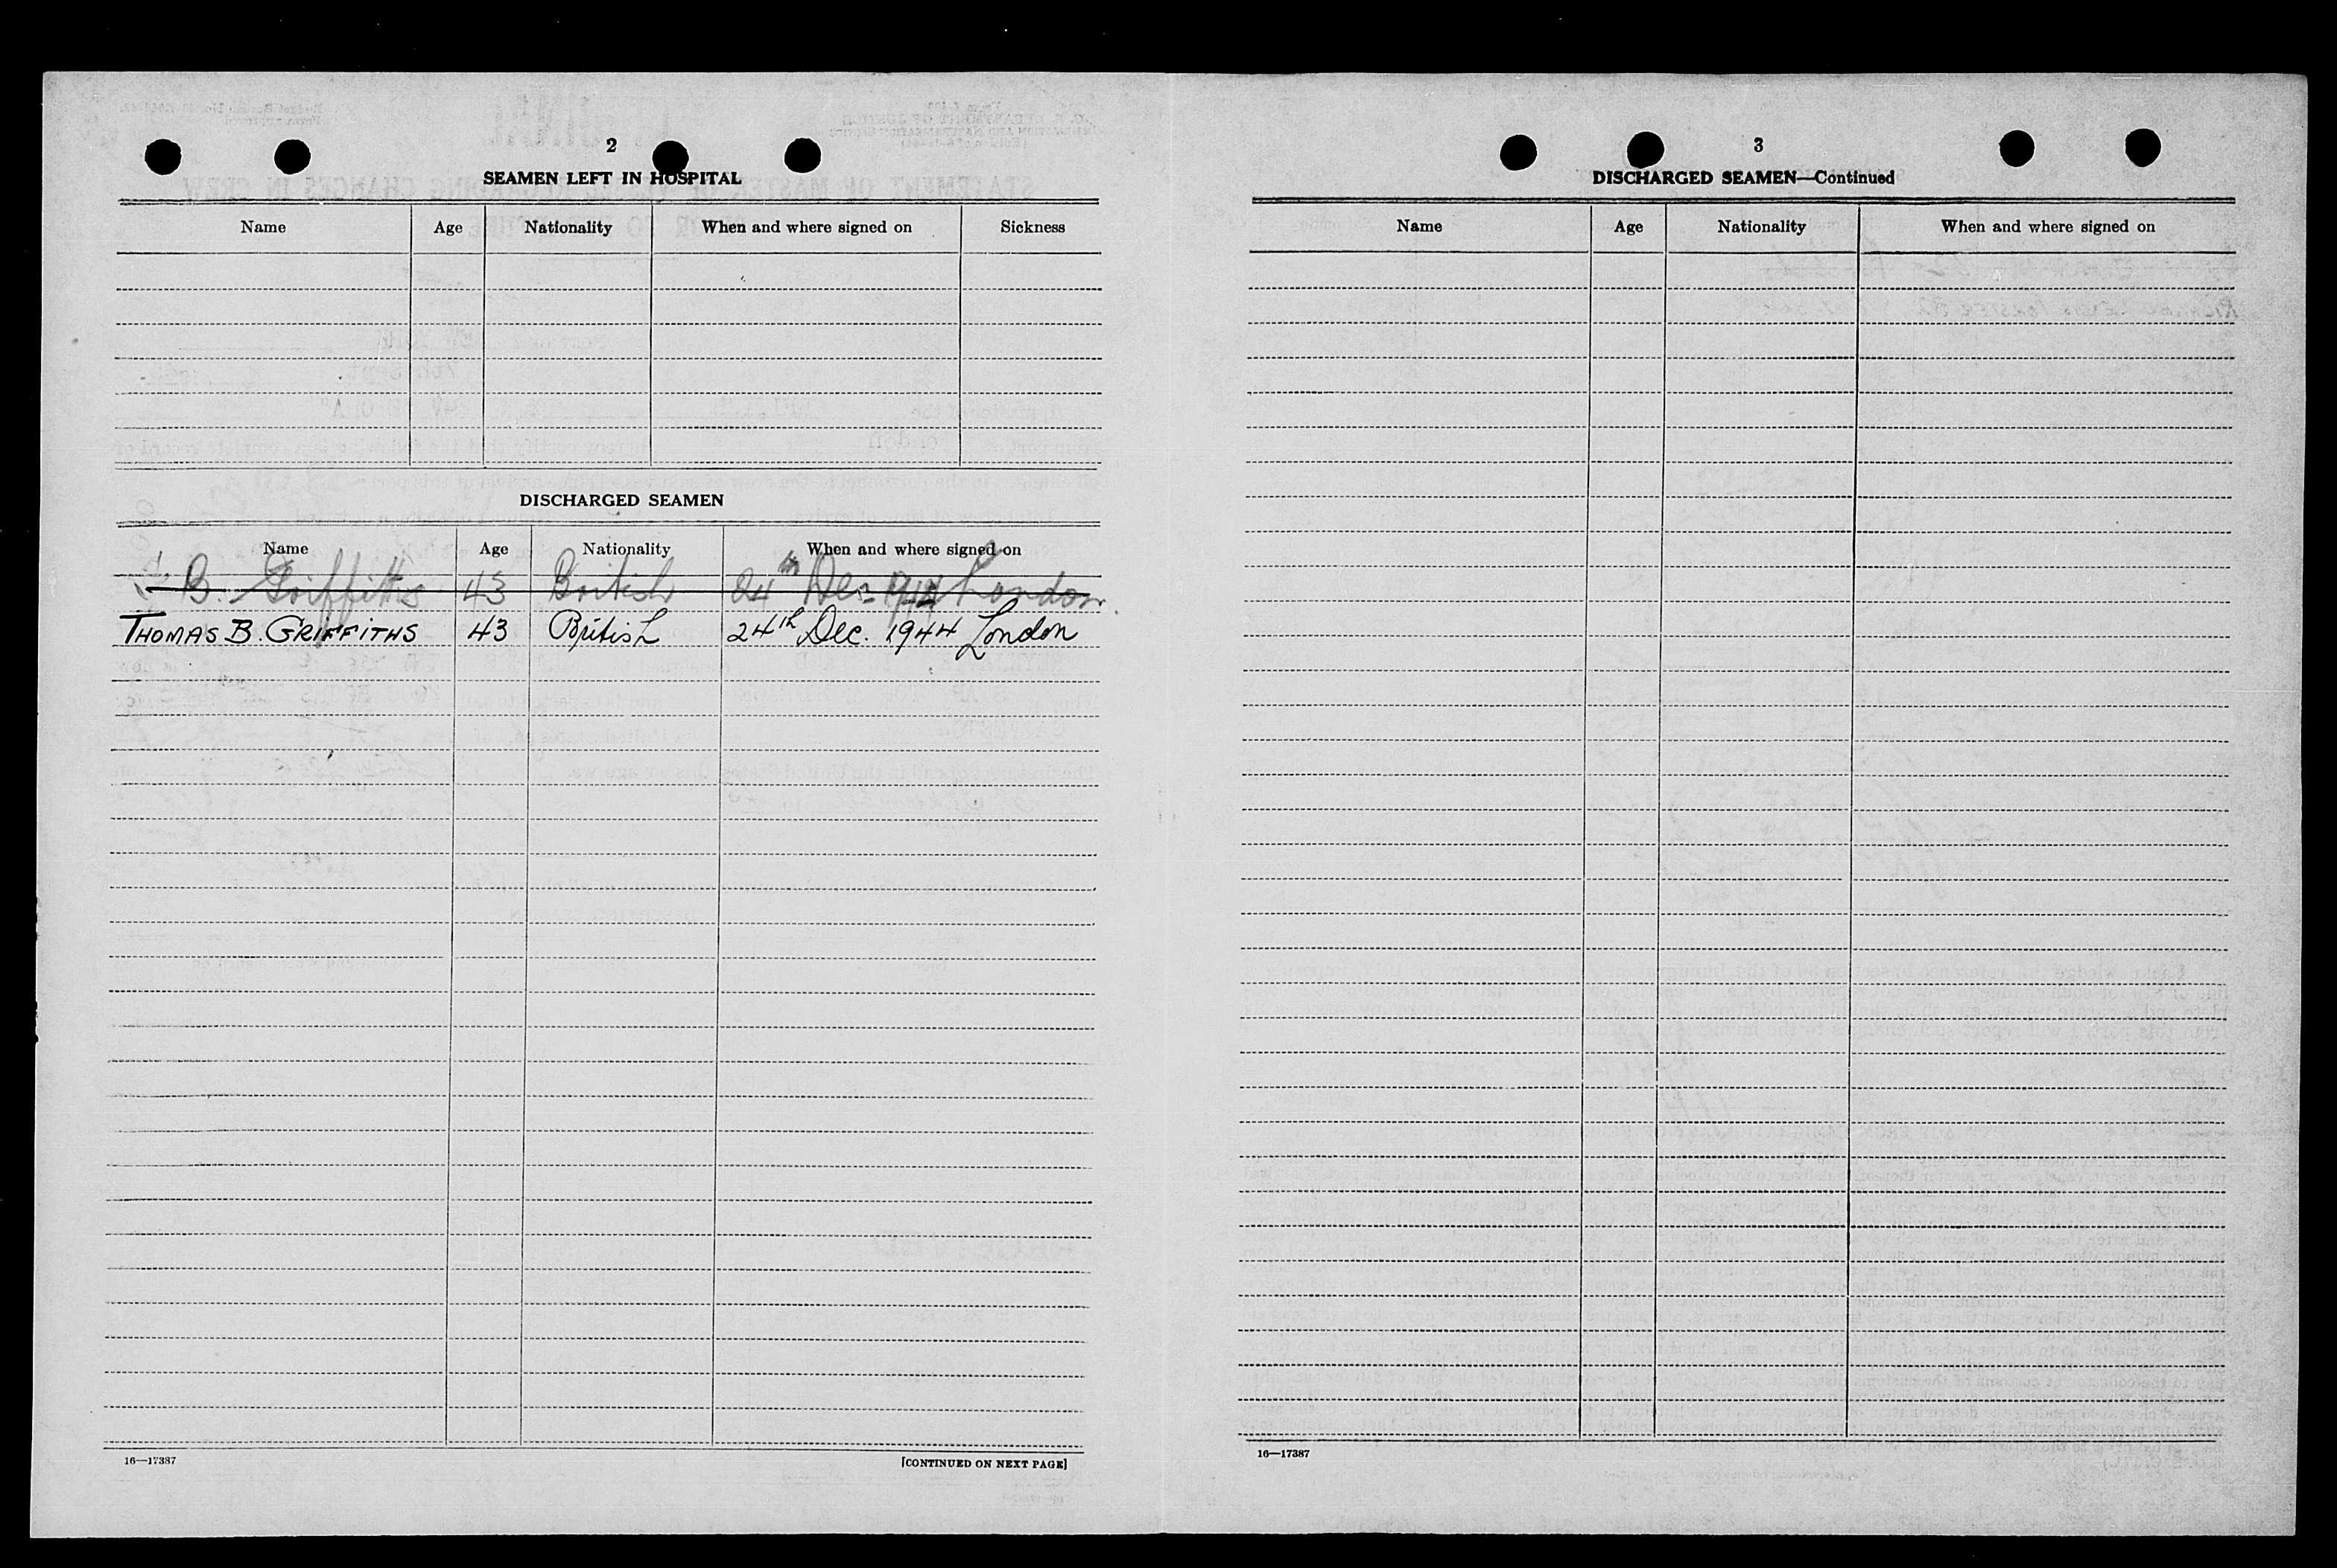 2
SEAMEN LEFT IN HOSPITAL
Name Age Nationality When and where signed on Sickness
DISCHARGED SEAMEN
Name Age Nationality When and where signed on
B. Griffiths 43 British 24th Dec 1944 London
THOMAS B. GRIFFITHS 43 British 24th Dec. 1944 London
16—17387 [CONTINUED ON NEXT PAGE]
3
DISCHARGED SEAMEN—Continued
Name Age Nationality When and where signed on
16—17387